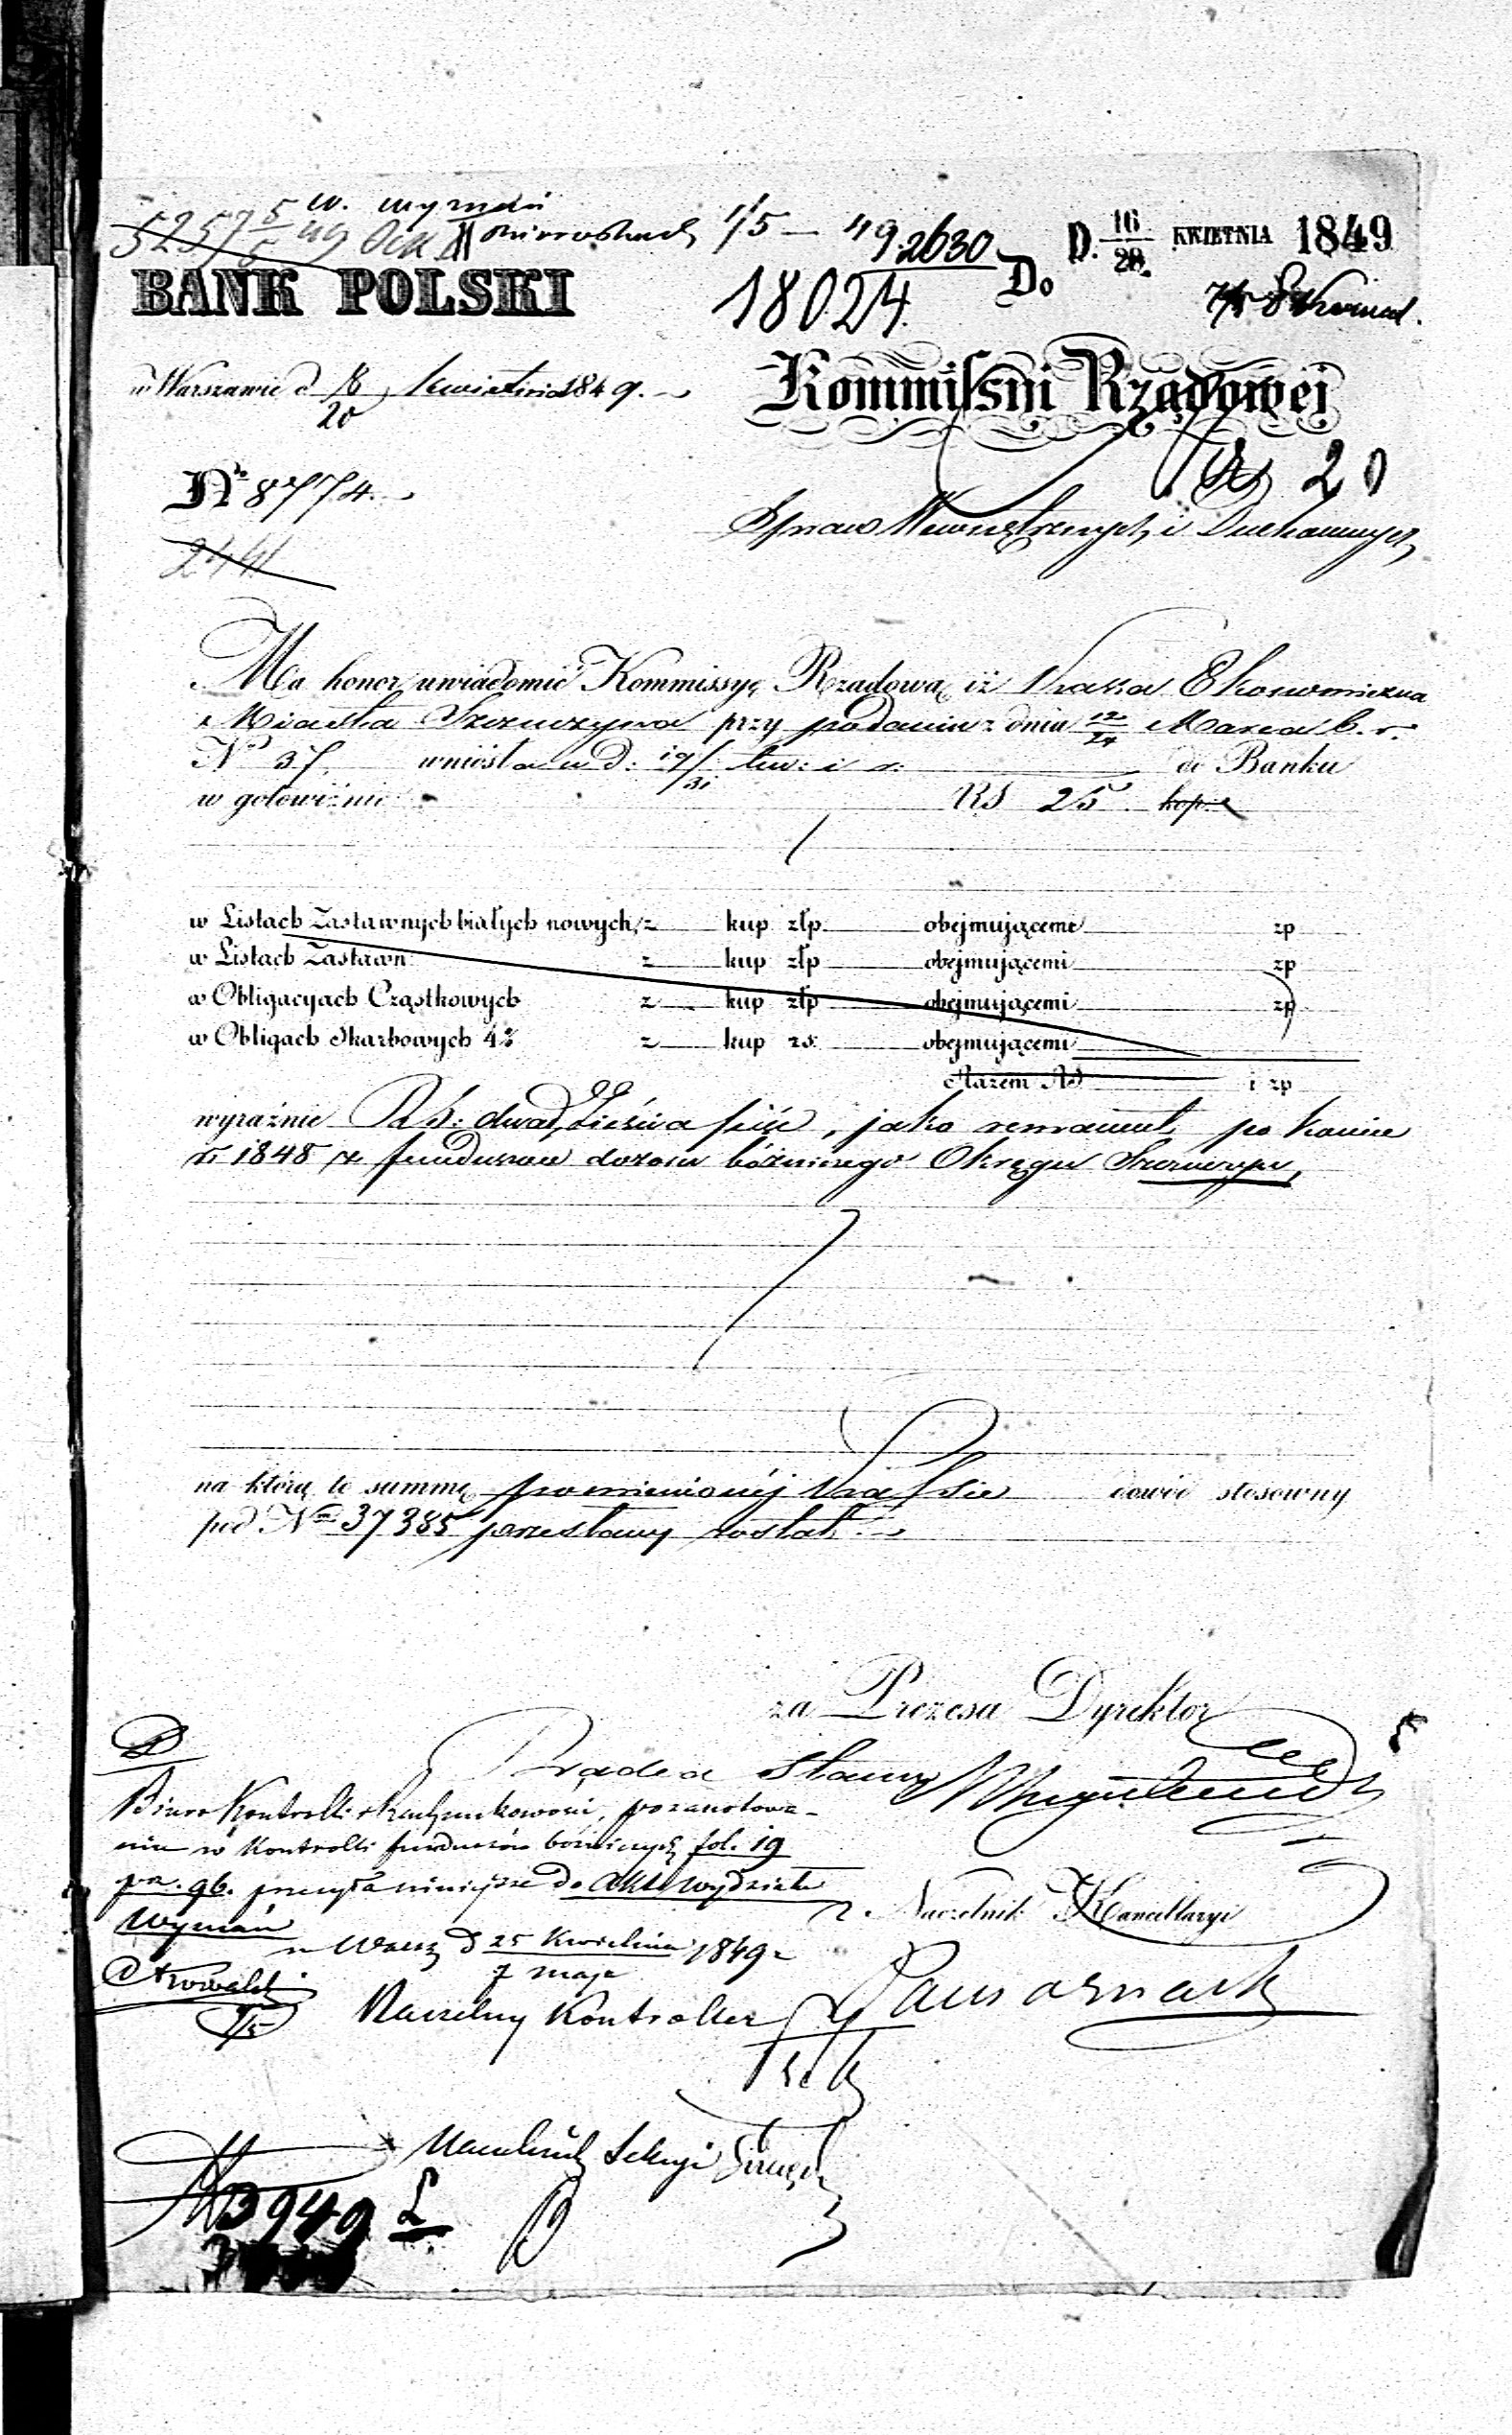 w. wyznań
5257 5/5 49
1/5 – 49 2630
D. 16/28 KWIETNIA 1849
BANK POLSKI
18024
Do
w Warszawie d 8/20 kwietnia 1849.
Kommissyi Rządowej
No 8774.
20
Spraw Wewnętrznych i Duchownych
2441
Ma honor uwiadomić Kommissyę Rządową iż Kassa Ekonomiczna
Miasta Szczuczyna przy podaniu z dnia 12/24 Marca b. r.
No 37. wniosła w d: 19/31 t.m. i r. do Banku
w gotowiźnie RS 25. kop.
w Listach Zastawnych białych nowych, z kup złp obejmującemi zp
w Listach Zastawn z kup złp obejmującemi zp
w Obligacyach Cząstkowych z kup złp obejmującemi zp
w Obligach Skarbowych 4% z kup rs: obejmującemi
Razem RS i zp
wyraźnie RS: dwadzieścia pięć, jako remanent po koniec
r. 1848 z funduszów dozoru bóżniczego Okręgu Szczuczyn,
na którą to summę pomienionéj Kassie dowód stosowny
pod No 37385 przesłany został.
za Prezesa Dyrektor
Radca Stanu
Biuro Kontrolli i Rachunkowości, po zanotowa-
niu w Kontrolli funduszów bóżniczych fol. 19
poz. 96. przesyła niniejsze do akt wydziału
Wyznań
w Warsz d 25 Kwietnia/7 maja 1849 r
Naczelnik Kancellaryi
Naczelny Kontroller
Naczelnik Sekcyi
3949